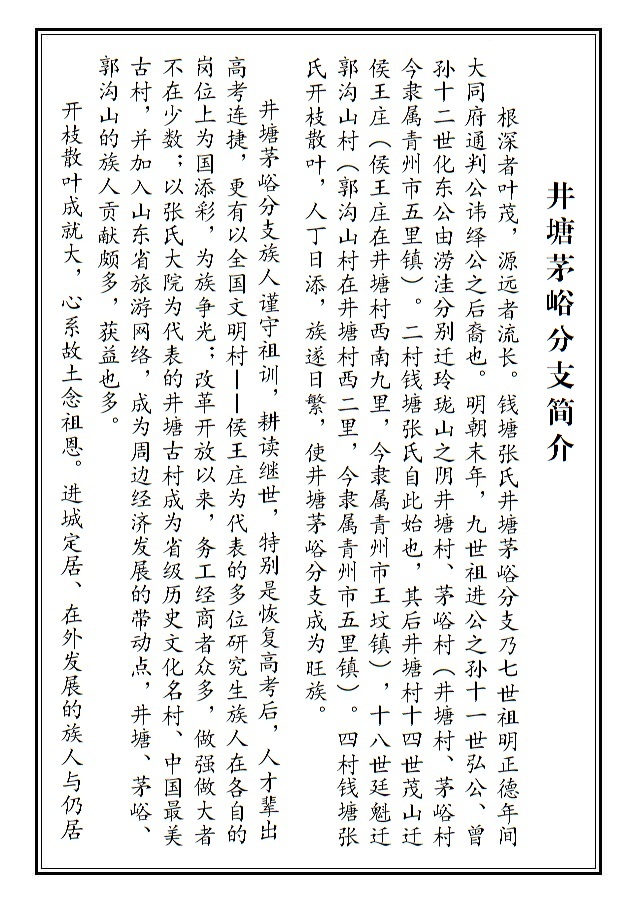 井塘茅峪分支简介
根深者叶茂，源远者流长。钱塘张氏井塘茅峪分支乃七世祖明正德年间
大同府通判公讳绎公之后裔也。明朝末年，九世祖进公之孙十一世弘公、曾
孙十二世化东公由涝洼分别迁玲珑山之阴井塘村、茅峪村（井塘村、茅峪村
今隶属青州市五里镇）。二村钱塘张氏自此始也，其后井塘村十四世茂山迁
侯王庄（侯王庄在井塘村西南九里，今隶属青州市王坟镇），十八世廷魁迁
郭沟山村（郭沟山村在井塘村西二里，今隶属青州市五里镇）。四村钱塘张
氏开枝散叶，人丁日添，族遂日繁，使井塘茅峪分支成为旺族。
井塘茅峪分支族人谨守祖训，耕读继世，特别是恢复高考后，人才辈出
高考连捷，更有以全国文明村——侯王庄为代表的多位研究生族人在各自的
岗位上为国添彩，为族争光；改革开放以来，务工经商者众多，做强做大者
不在少数；以张氏大院为代表的井塘古村成为省级历史文化名村、中国最美
古村，并加入山东省旅游网络，成为周边经济发展的带动点，井塘、茅峪、
郭沟山的族人贡献颇多，获益也多。
开枝散叶成就大，心系故土念祖恩。进城定居、在外发展的族人与仍居